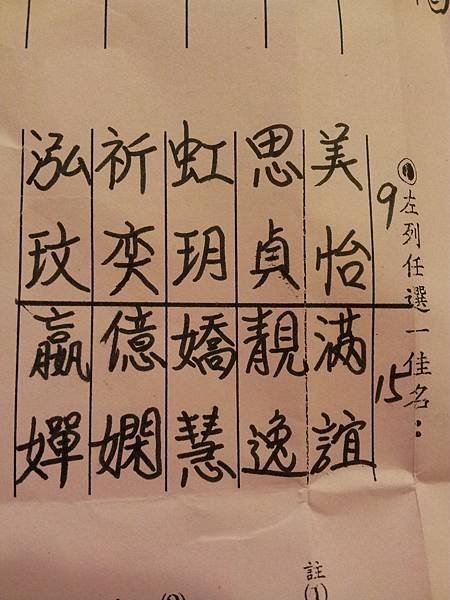 ❶左列任選一佳名：
9
15
美怡
滿誼
思貞
靚逸
虹玥
嬌慧
祈奕
億嫻
泓玟
嬴嬋
註
(1)